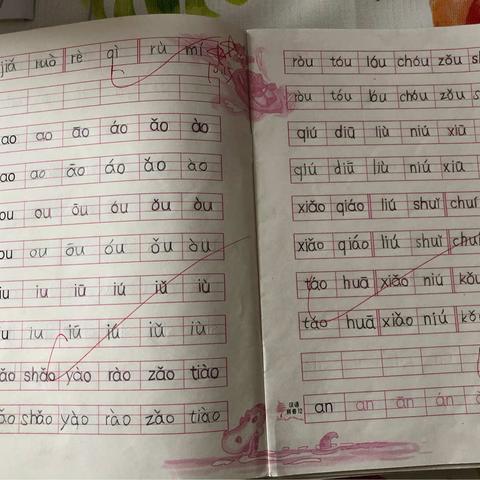 ruò rè qì rù mí
ao ao āo áo ǎo ào
ao ao āo áo ǎo ào
ou ou ōu óu ǒu òu
ou ou ōu óu ǒu òu
iu iu iū iú iǔ iù
iu iū iú iǔ iù
shǎo yào rào zǎo tiào
shǎo yào rào zǎo tiào
ròu tóu lóu chóu zǒu
ròu tóu lóu chóu zǒu
qiú diū liù niú xiū
qiú diū liù niú xiū
xiǎo qiáo liú shuǐ chuī
xiǎo qiáo liú shuǐ chuī
táo huā xiǎo niú kǒu
táo huā xiǎo niú
an an ān án